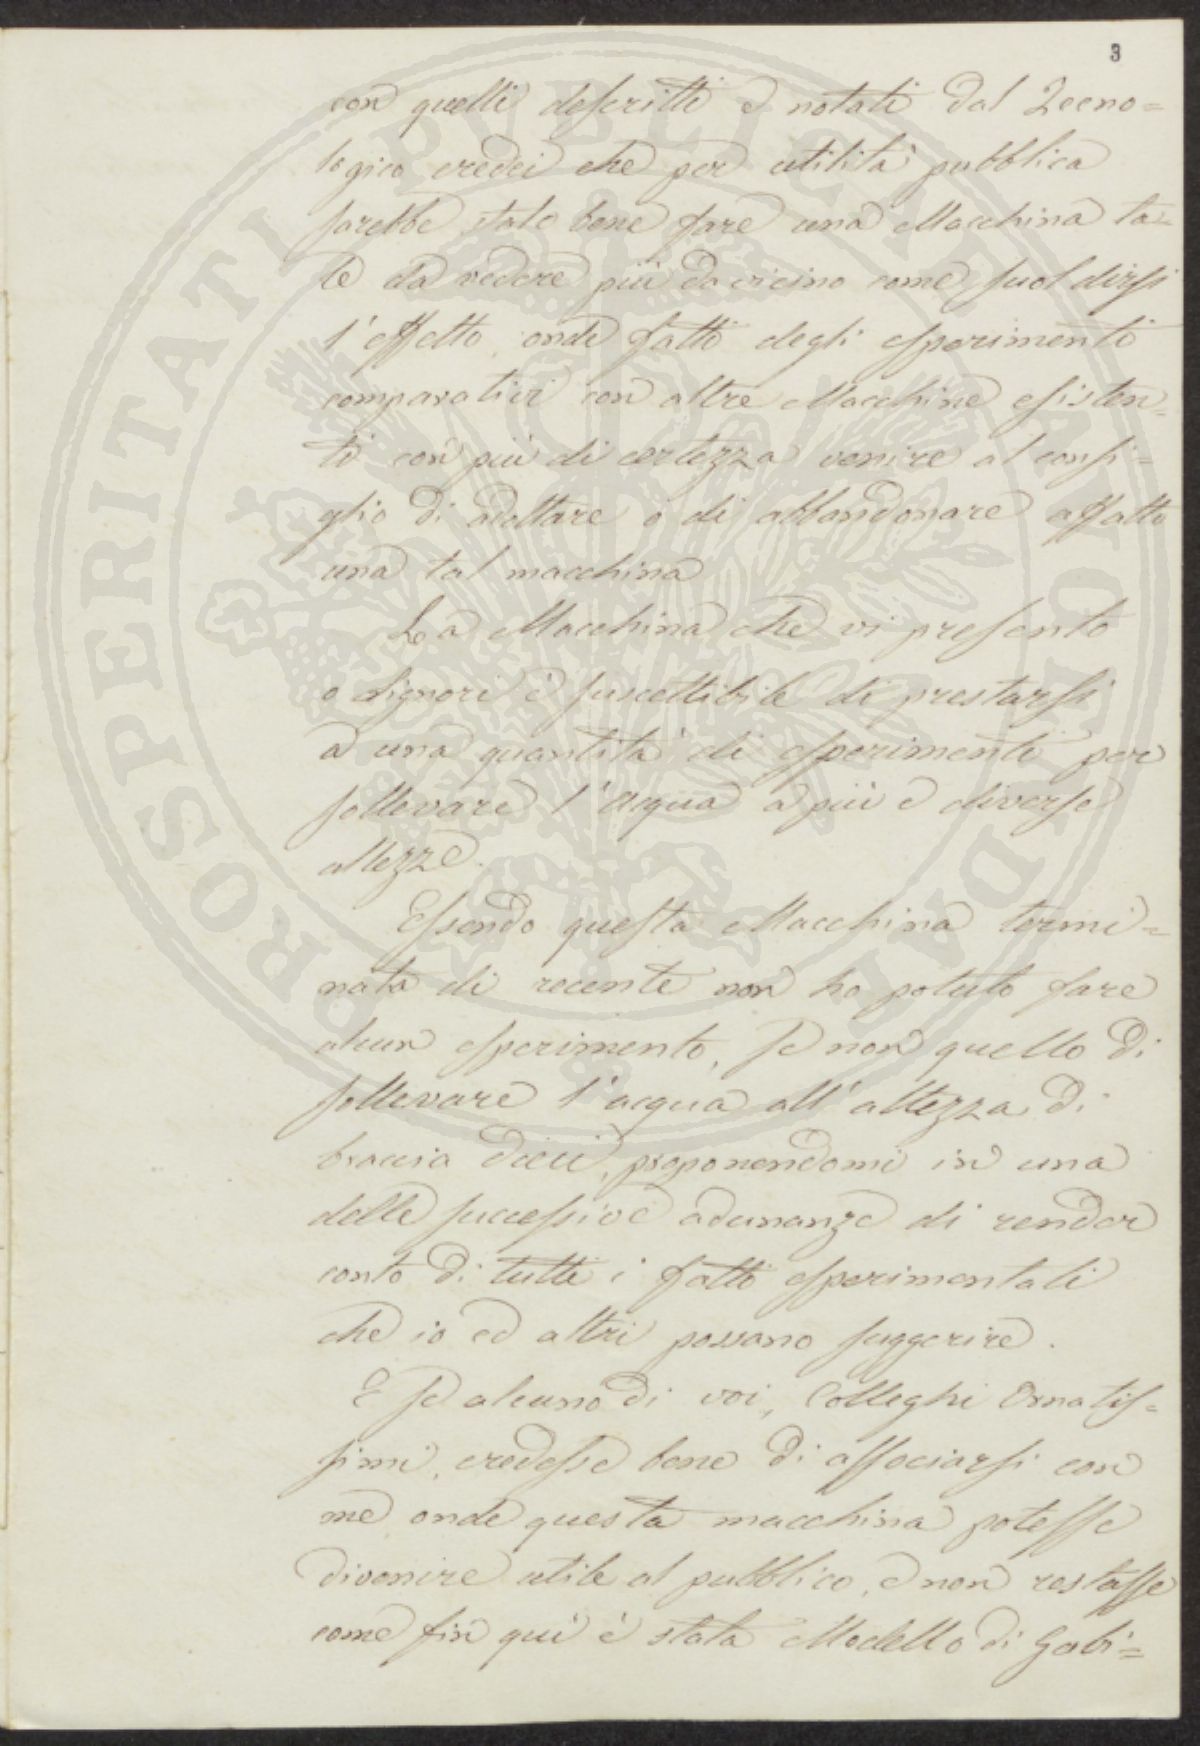 3
con quelli descritti e notati dal Tecno=
logico credei che per utilità pubblica
sarebbe stato bene fare una Macchina ta=
le da vedere più da vicino come suol dirsi
l'effetto, onde fatti degli esperimenti
comparativi con altre Macchine esisten=
ti con più di certezza venire al consi=
glio di adottare o di abbandonare affatto
una tal macchina
La Macchina che vi presento
o Signori è suscettibile di prestarsi
a una quantità di esperimenti per
sollevare l'acqua a più e diverse
altezze.
Essendo questa Macchina termi=
nata di recente non ho potuto fare
alcun esperimento, se non quello di
sollevare l'acqua all'altezza di
braccia dieci, proponendomi in una
delle successive adunanze di render
conto di tutti i fatti esperimentali
che io ed altri possano suggerire.
E se alcuno di voi, Colleghi Ornatis=
simi, credesse bene di associarsi con
me onde questa macchina potesse
divenire utile al pubblico, e non restasse
come fin qui è stata Modello di Gabi=
PROSPERITATI PUBLICAE AUGENDAE